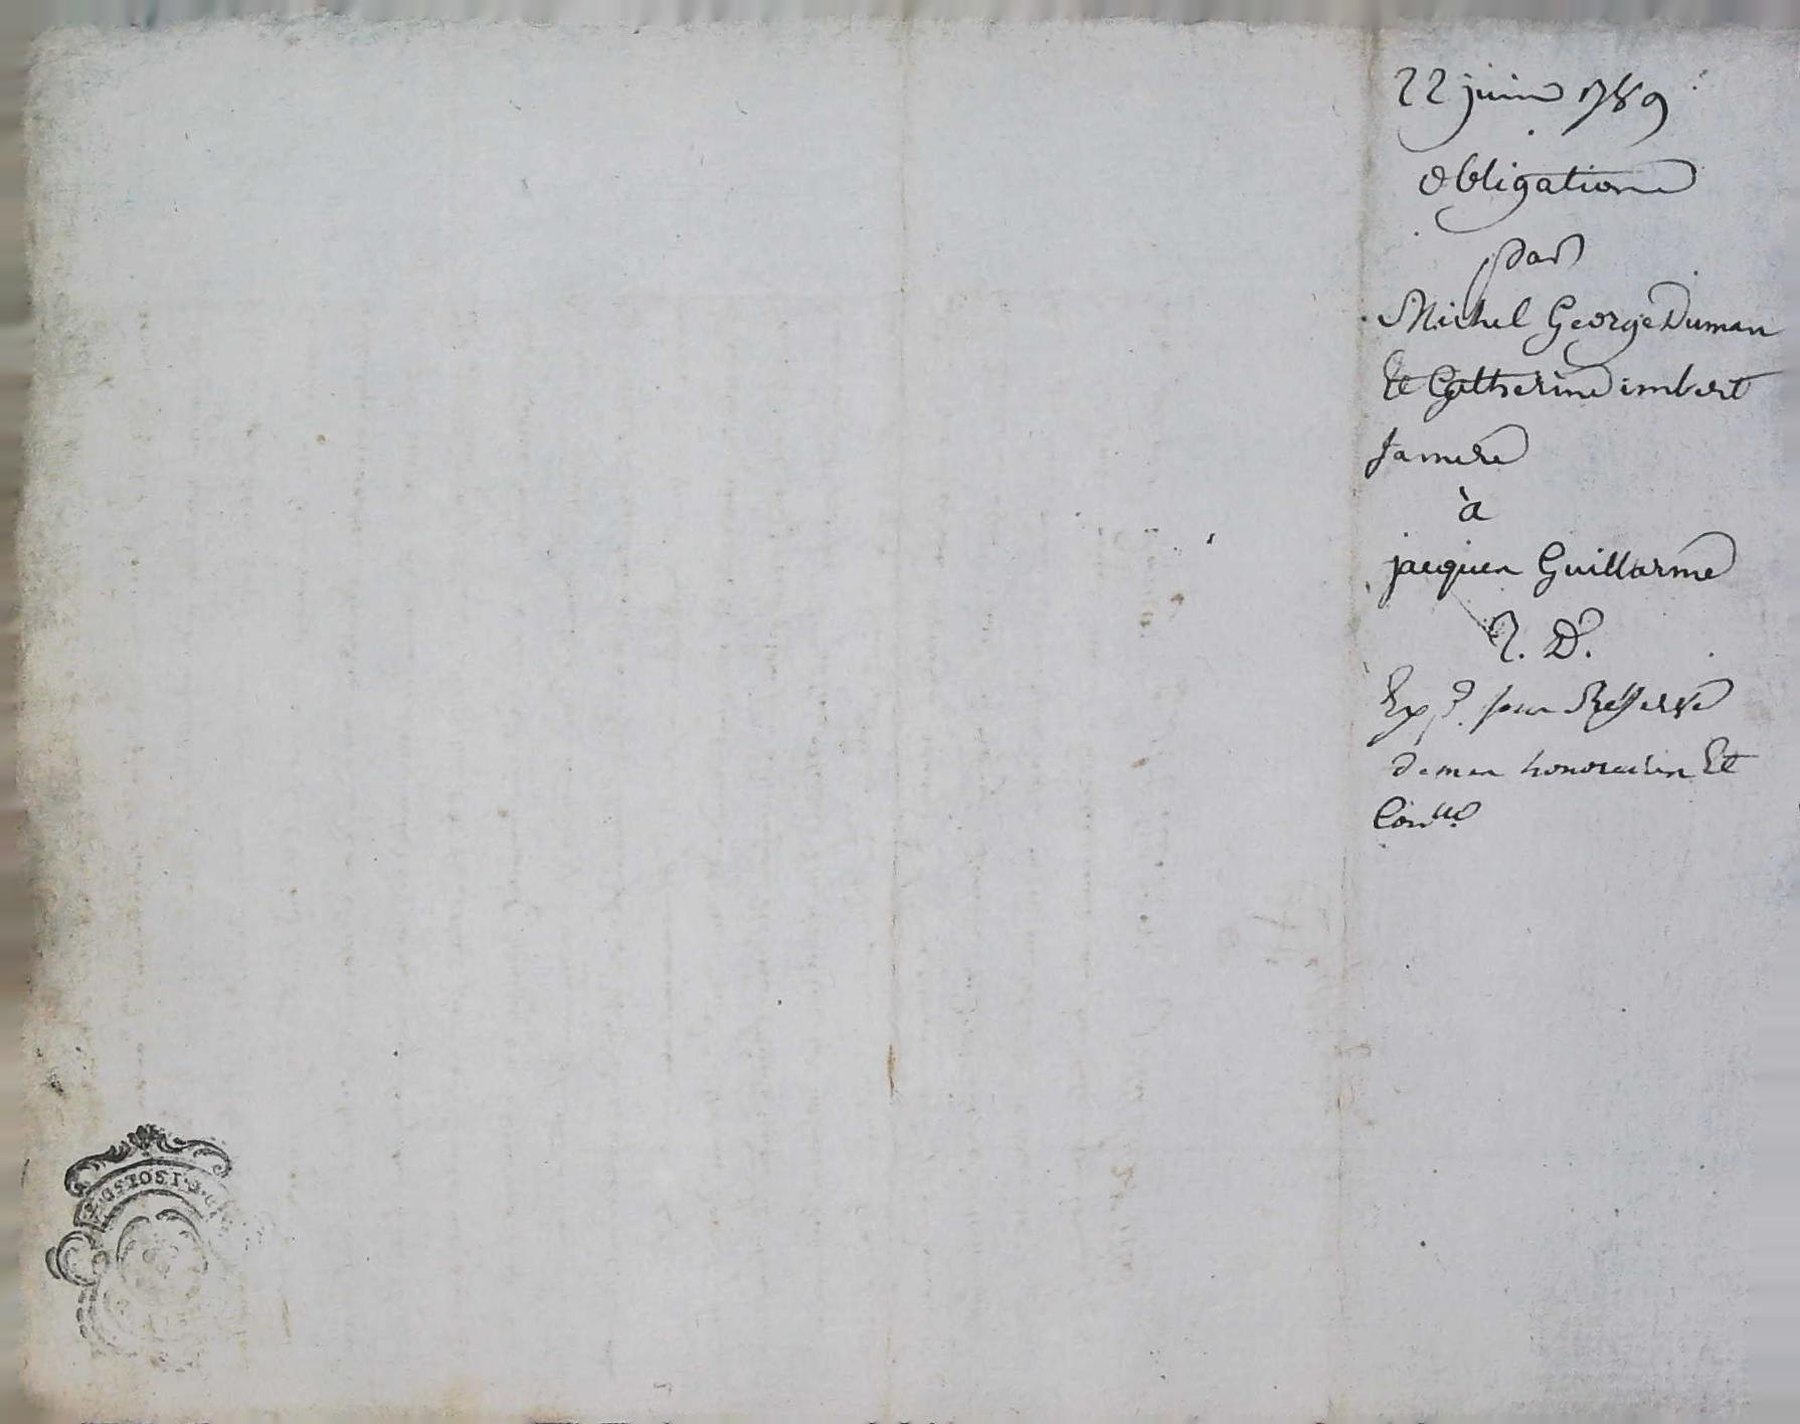 22 juin 1789
obligation
par
Michel George Duman
Et Catherine imbert
sa mere
à
jacques Guillarme
Exp.^e sans Reserve
de mes honoraires Et